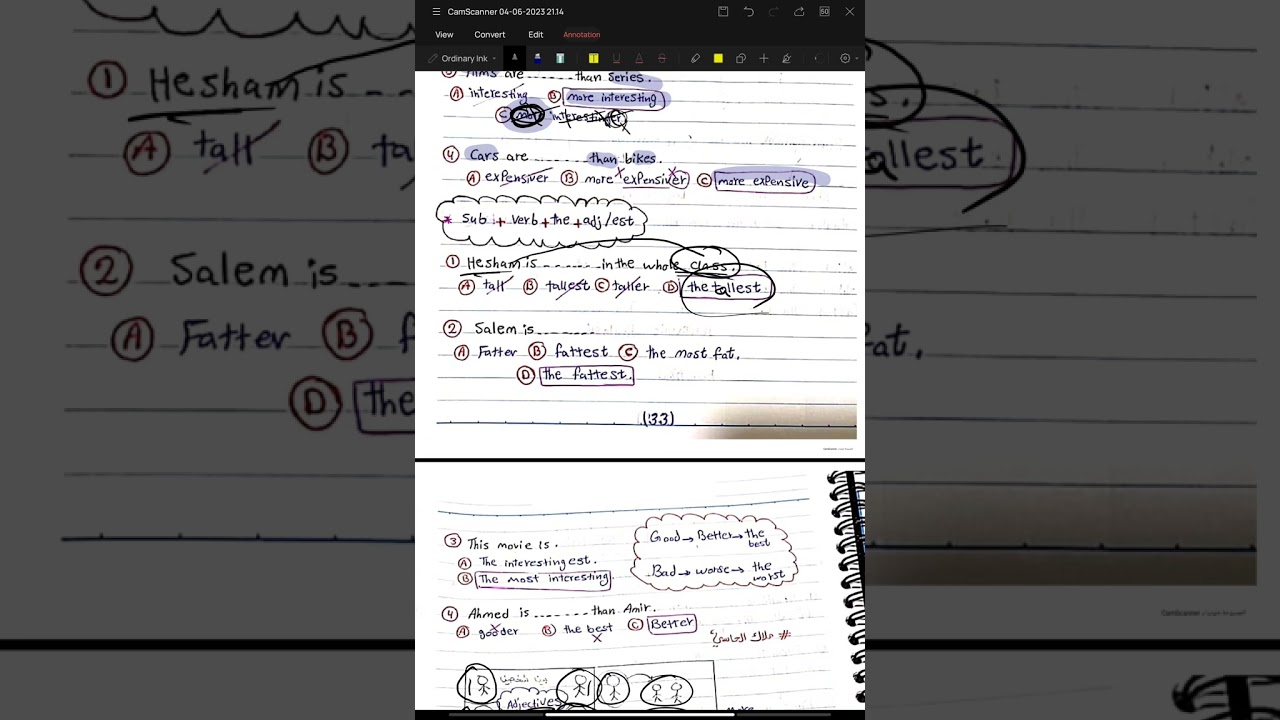 CamScanner 04-06-2023 21.14
View Convert Edit Annotation
Ordinary Ink
Films are ------- than series.
A interesting B more interesting
C more interestinger
4 Cars are ------- than bikes.
A expensiver B more expensiver C more expensive
* Sub + verb + the + adj/est
1 Hesham is ------- in the whole class.
A tall B tallest C taller D the tallest
2 Salem is -------
A Fatter B fattest C the most fat.
D the fattest.
(33)
CamScanner
3 This movie is.
A The interestingest.
B The most interesting
Good → Better → the best
Bad → worse → the worst
4 Ahmed is ------- than Amir.
A gooder B the best C Better
Adjectives